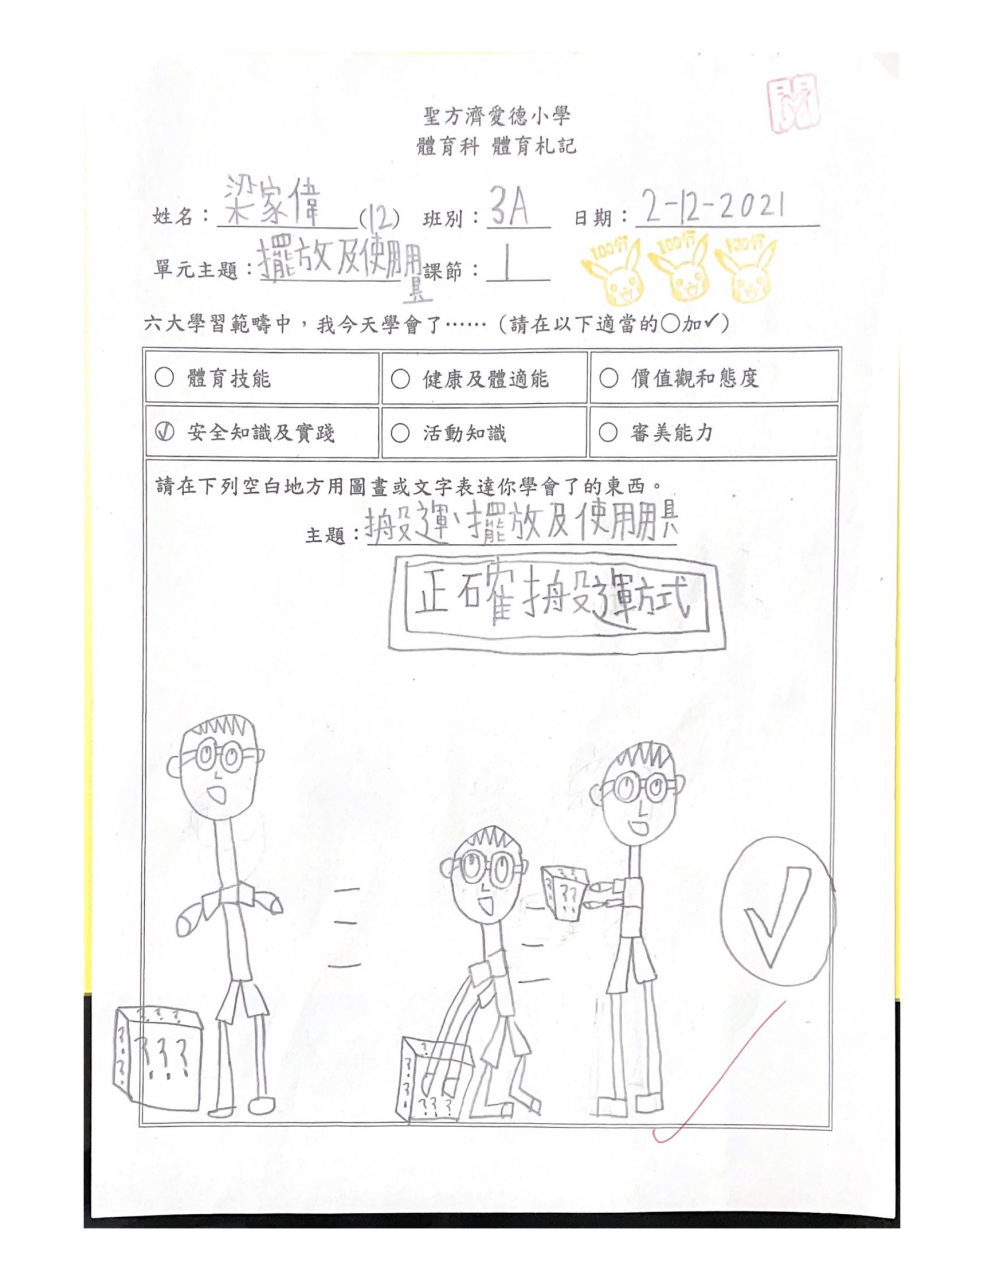 閱
聖方濟愛德小學
體育科 體育札記
姓名：梁家偉 (12) 班別：3A 日期：2-12-2021
100分 100分 100分
單元主題：擺放及使用用具 課節：1
六大學習範疇中，我今天學會了……（請在以下適當的○加✓）
○ 體育技能 ○ 健康及體適能 ○ 價值觀和態度
✓ 安全知識及實踐 ○ 活動知識 ○ 審美能力
請在下列空白地方用圖畫或文字表達你學會了的東西。
主題：搬運、擺放及使用用具
正確搬運方式
? ? ?
? ? ?
? ? ?
? ?
? ? ?